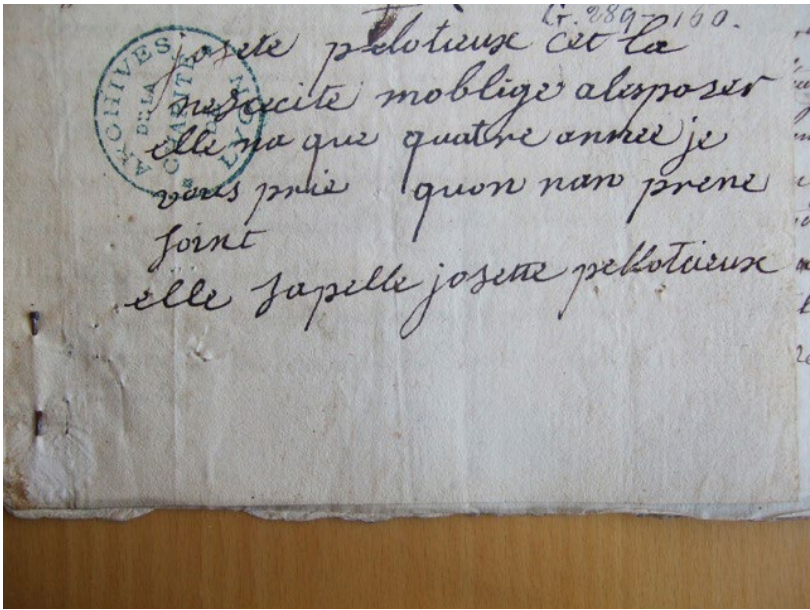 G. 289-160.
ARCHIVES DE LA CHARITÉ DE LYON
josete pelotieux cet la
nesecite moblige alesposer
elle na que quatre annee je
vous prie quon nan prene
soint
elle sapelle josette pellotieux